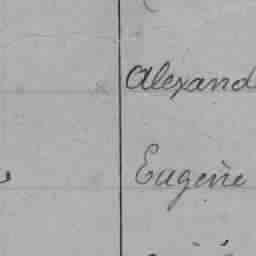 Alexand
Eugène